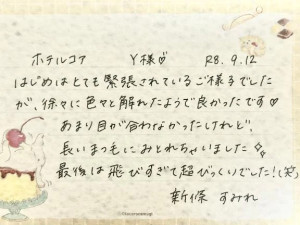 ホテルコア　Y様♡　R8.9.12
はじめはとても緊張されているご様子でした
が、徐々に色々と解れたようで良かったです♡
あまり目が合わなかったけれど、
長いまつ毛にみとれちゃいました✧
最後は飛びすぎて超びっくりでした!(笑)
新條 すみれ